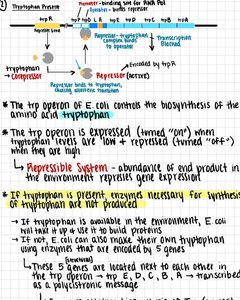 1
Tryptophan Present
Promoter - binding site for RNA Pol
Operator - binds repressor
trpR
trpP trpO L A trpE trpD trpC trpB trpA
Repressor-tryptophan complex binds to operator
Transcription Blocked
tryptophan → Corepressor
Repressor (active)
Encoded by trpR
Repressor binds to tryptophan, causing allosteric transition
* The trp operon of E.coli controls the biosynthesis of the
amino acid tryptophan
* The trp operon is expressed (turned "on") when
tryptophan levels are low + repressed (turned "off")
when they are high
↳ Repressible System - abundance of end product in
the environment represses gene expression
* If tryptophan is present, enzymes necessary for synthesis
of tryptophan are not produced
→ If tryptophan is available in the environment, E.coli
will take it up + use it to build proteins
→ If not, E.coli can also make their own tryptophan
using enzymes that are encoded by 5 genes
(structural)
↳ These 5 genes are located next to each other in
the trp operon → trp E, D, C, B, A → transcribed
as a polycistronic message